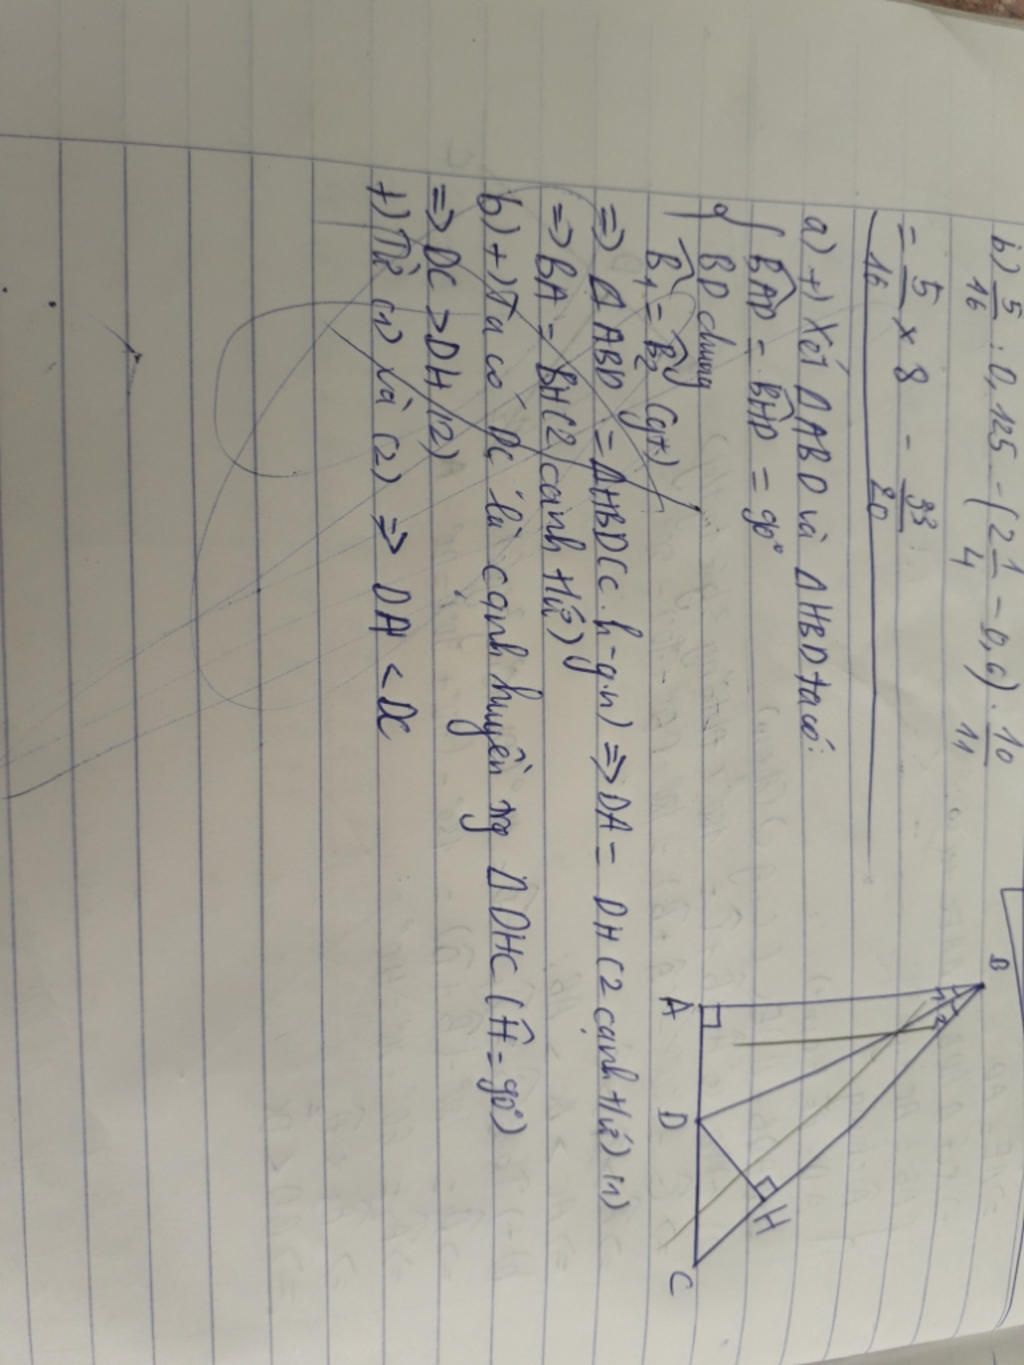 b) 5/16 : 0,125 - (2 1/4 - 0,6) . 10/11
= 5/16 × 8 - 33/20
a) +) Xét ΔABD và ΔHBD ta có:
BAD = BHD = 90°
BD chung
B1 = B2 (gt)
=> ΔABD = ΔHBD (c.h-g.n) => DA = DH (2 cạnh tứ) (1)
=> BA = BH (2 cạnh tứ)
b) +) Ta có DC là cạnh huyền trg ΔDHC (H = 90°)
=> DC > DH (2)
+) Từ (1) và (2) => DA < DC
B
1 2
A
D
H
C